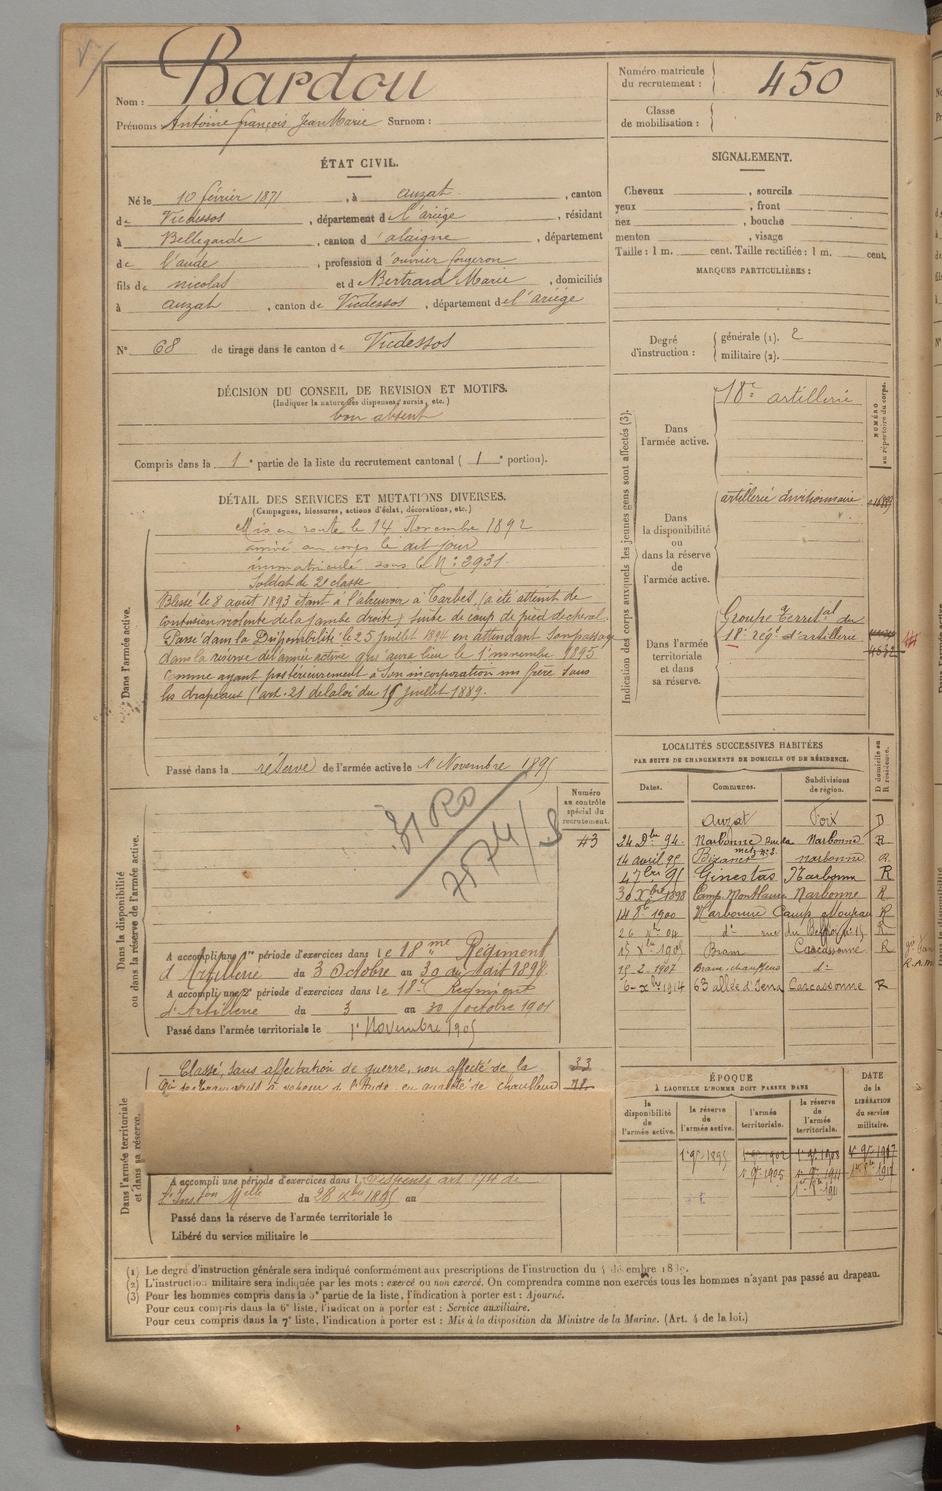 Nom : Bardou
Prénoms : Antoine françois Jean Marie Surnom :
Numéro matricule du recrutement : 450
Classe de mobilisation :
ÉTAT CIVIL.
Né le 10 février 1871, à auzat, canton
de Vicdessos, département de l'ariège, résidant
à Bellegarde, canton d'alaigne, département
de l'aude, profession d'ouvrier forgeron
fils de nicolas et de Bertrand Marie, domiciliés
à auzat, canton de Vicdessos, département de l'ariège
N° 68 de tirage dans le canton de Vicdessos
SIGNALEMENT.
Cheveux , sourcils
yeux , front
nez , bouche
menton , visage
Taille : 1 m. cent. Taille rectifiée : 1 m. cent.
MARQUES PARTICULIÈRES :
Degré d'instruction : générale (1). 2
militaire (2).
DÉCISION DU CONSEIL DE REVISION ET MOTIFS.
(Indiquer la nature des dispenses, sursis, etc.)
bon absent
Compris dans la 1e partie de la liste du recrutement cantonal ( 1e portion).
DÉTAIL DES SERVICES ET MUTATIONS DIVERSES.
(Campagnes, blessures, actions d'éclat, décorations, etc.)
Dans l'armée active.
Mis en route le 14 Novembre 1892
arrivé au corps le dit jour
immatriculé sous le N° 2931
Soldat de 2e classe
Blessé le 8 août 1893 étant à l'abreuvoir à Tarbes, (a été atteint de
contusion violente de la jambe droite) suite de coup de pied de cheval.
Passé dans la Disponibilité le 25 juillet 1894 en attendant son passage
dans la réserve de l'armée active qui aura lieu le 1er novembre 1895
comme ayant postérieurement à son incorporation un frère sous
les drapeaux (art. 21 de la loi du 15 juillet 1889.
Passé dans la réserve de l'armée active le 1 Novembre 1895
Indication des corps auxquels les jeunes gens sont affectés (3).
NUMÉRO au répertoire du corps.
Dans l'armée active.
18e artillerie
Dans la disponibilité ou dans la réserve de l'armée active.
artillerie divisionnaire
Dans l'armée territoriale et dans sa réserve.
Groupe Territal du
18e régt d'artillerie
LOCALITÉS SUCCESSIVES HABITÉES
PAR SUITE DE CHANGEMENTS DE DOMICILE OU DE RÉSIDENCE.
Dates. Communes. Subdivisions de région. D domicile ou R résidence.
auzat Foix D
24 Dbre 94. Narbonne Narbonne R
14 avril 95 narbonne R
Ginestas Narbonne R
Camp Narbonne R
1900 Narbonne Camp R
du R
1905 Bram Carcassonne R
15-2-1907 Bram chauffeur do
1914 63 allée d'Iena Carcassonne R
Dans la disponibilité ou dans la réserve de l'armée active.
Numéro au contrôle spécial du recrutement.
43
A accompli une 1re période d'exercices dans le 18me Régiment
d'Artillerie du 3 Octobre au 30 du dit 1898
A accompli une 2e période d'exercices dans le 18e Régiment
d'Artillerie du 3 au 30 octobre 1901
Passé dans l'armée territoriale le 1er Novembre 1905
Dans l'armée territoriale et dans sa réserve.
Classé, sans affectation de guerre, non affecté de la
33
à vapeur de l'Aude en qualité de chauffeur
A accompli une période d'exercices dans
du 28 1895 au
Passé dans la réserve de l'armée territoriale le
Libéré du service militaire le
ÉPOQUE À LAQUELLE L'HOMME DOIT PASSER DANS
DATE de la LIBÉRATION du service militaire.
la disponibilité de l'armée active.
la réserve de l'armée active.
l'armée territoriale.
la réserve de l'armée territoriale.
(1) Le degré d'instruction générale sera indiqué conformément aux prescriptions de l'instruction du
(2) L'instruction militaire sera indiquée par les mots : exercé ou non exercé. On comprendra comme non exercés tous les hommes n'ayant pas passé au drapeau.
(3) Pour les hommes compris dans la 5e partie de la liste, l'indication à porter est : Ajourné.
Pour ceux compris dans la 6e liste, l'indication à porter est : Service auxiliaire.
Pour ceux compris dans la 7e liste, l'indication à porter est : Mis à la disposition du Ministre de la Marine. (Art. 4 de la loi.)